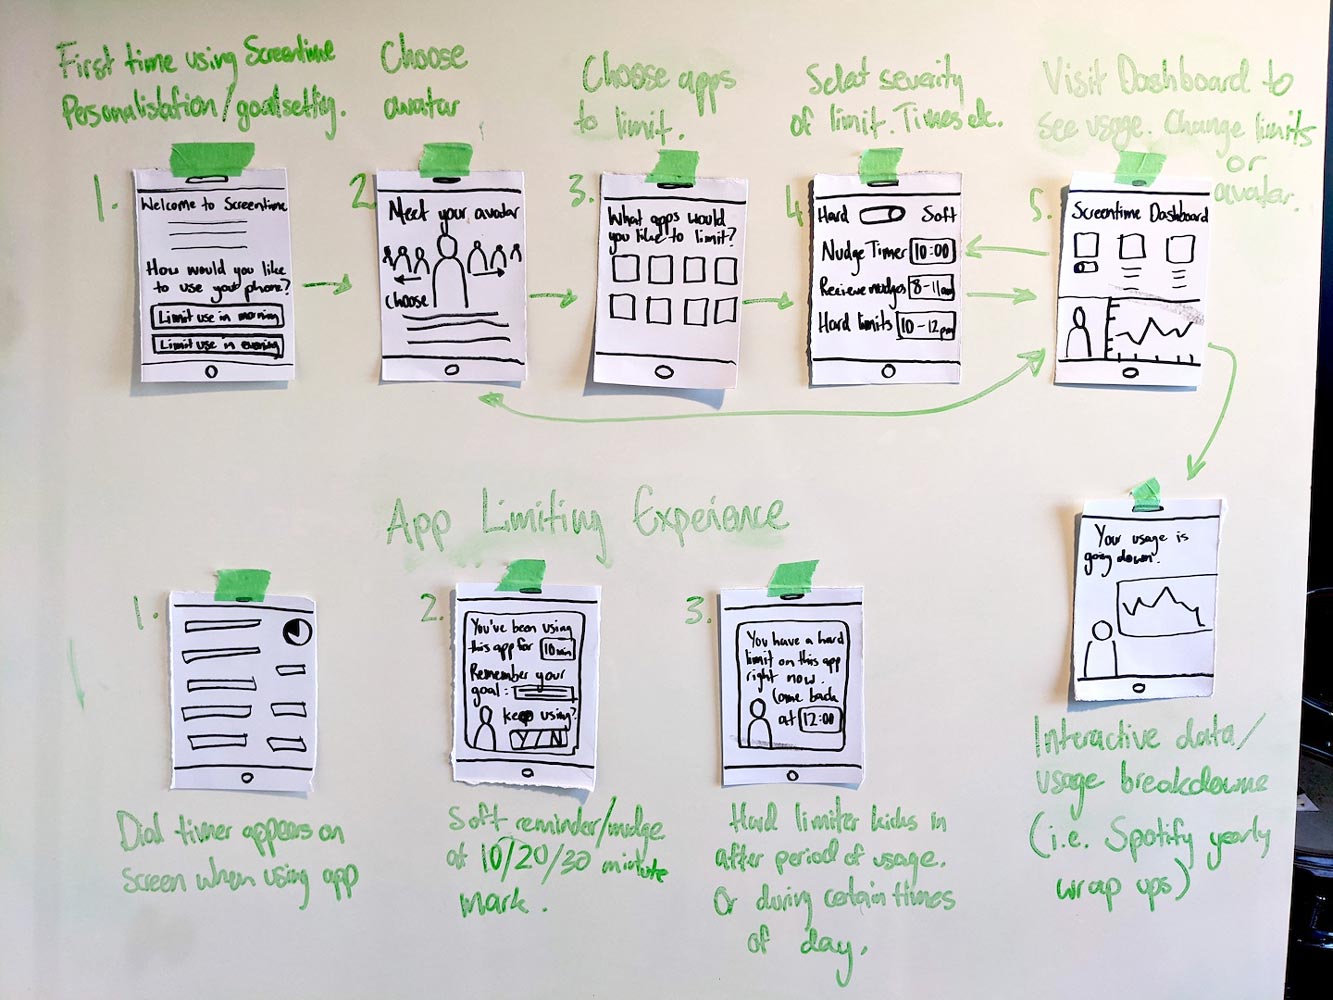 First time using Screentime
Personalistation/goalsetting.
Choose
avatar
Choose apps
to limit.
Select severity
of limit. Times etc.
Visit Dashboard to
see usage. Change limits
or
avatar.
1.
Welcome to Screentime
How would you like
to use your phone?
Limit use in morning
Limit use in evening
2.
Meet your avatar
choose
3.
What apps would
you like to limit?
4.
Hard Soft
Nudge Timer 10:00
Recieve nudges 8-11am
Hard limits 10-12pm
5.
Screentime Dashboard
Your usage is
going down.
Interactive data/
usage breakdowns
(i.e. Spotify yearly
wrap ups)
App Limiting Experience
1.
Dial timer appears on
screen when using app
2.
You've been using
this app for 10min
Remember your
goal:
keep using?
Y/N
Soft reminder/nudge
at 10/20/30 mintute
mark.
3.
You have a hard
limit on this app
right now.
Come back
at 12:00
Hard limiter kicks in
after period of usage.
Or during certain times
of day.